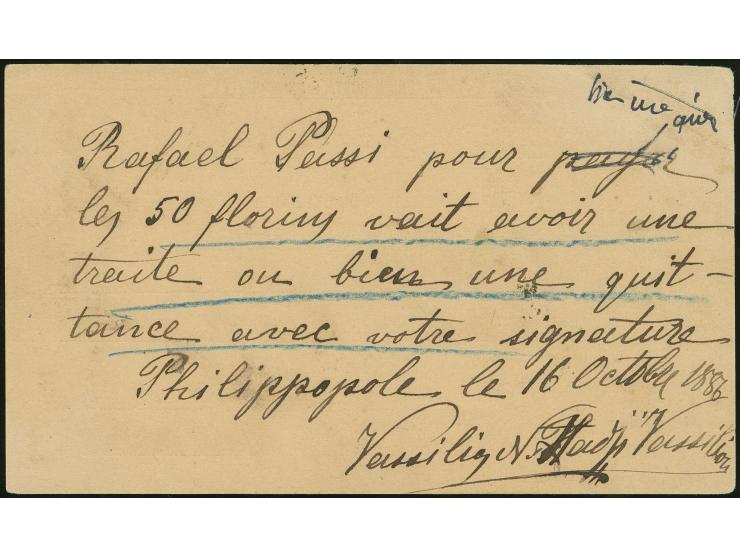 Rafael Passi pour
les 50 florins vait avoir une
traite ou bien une quit-
tance avec votre signature
Philippopole le 16 Octobre 1886
Vassilis N. Hadji Vassiliou